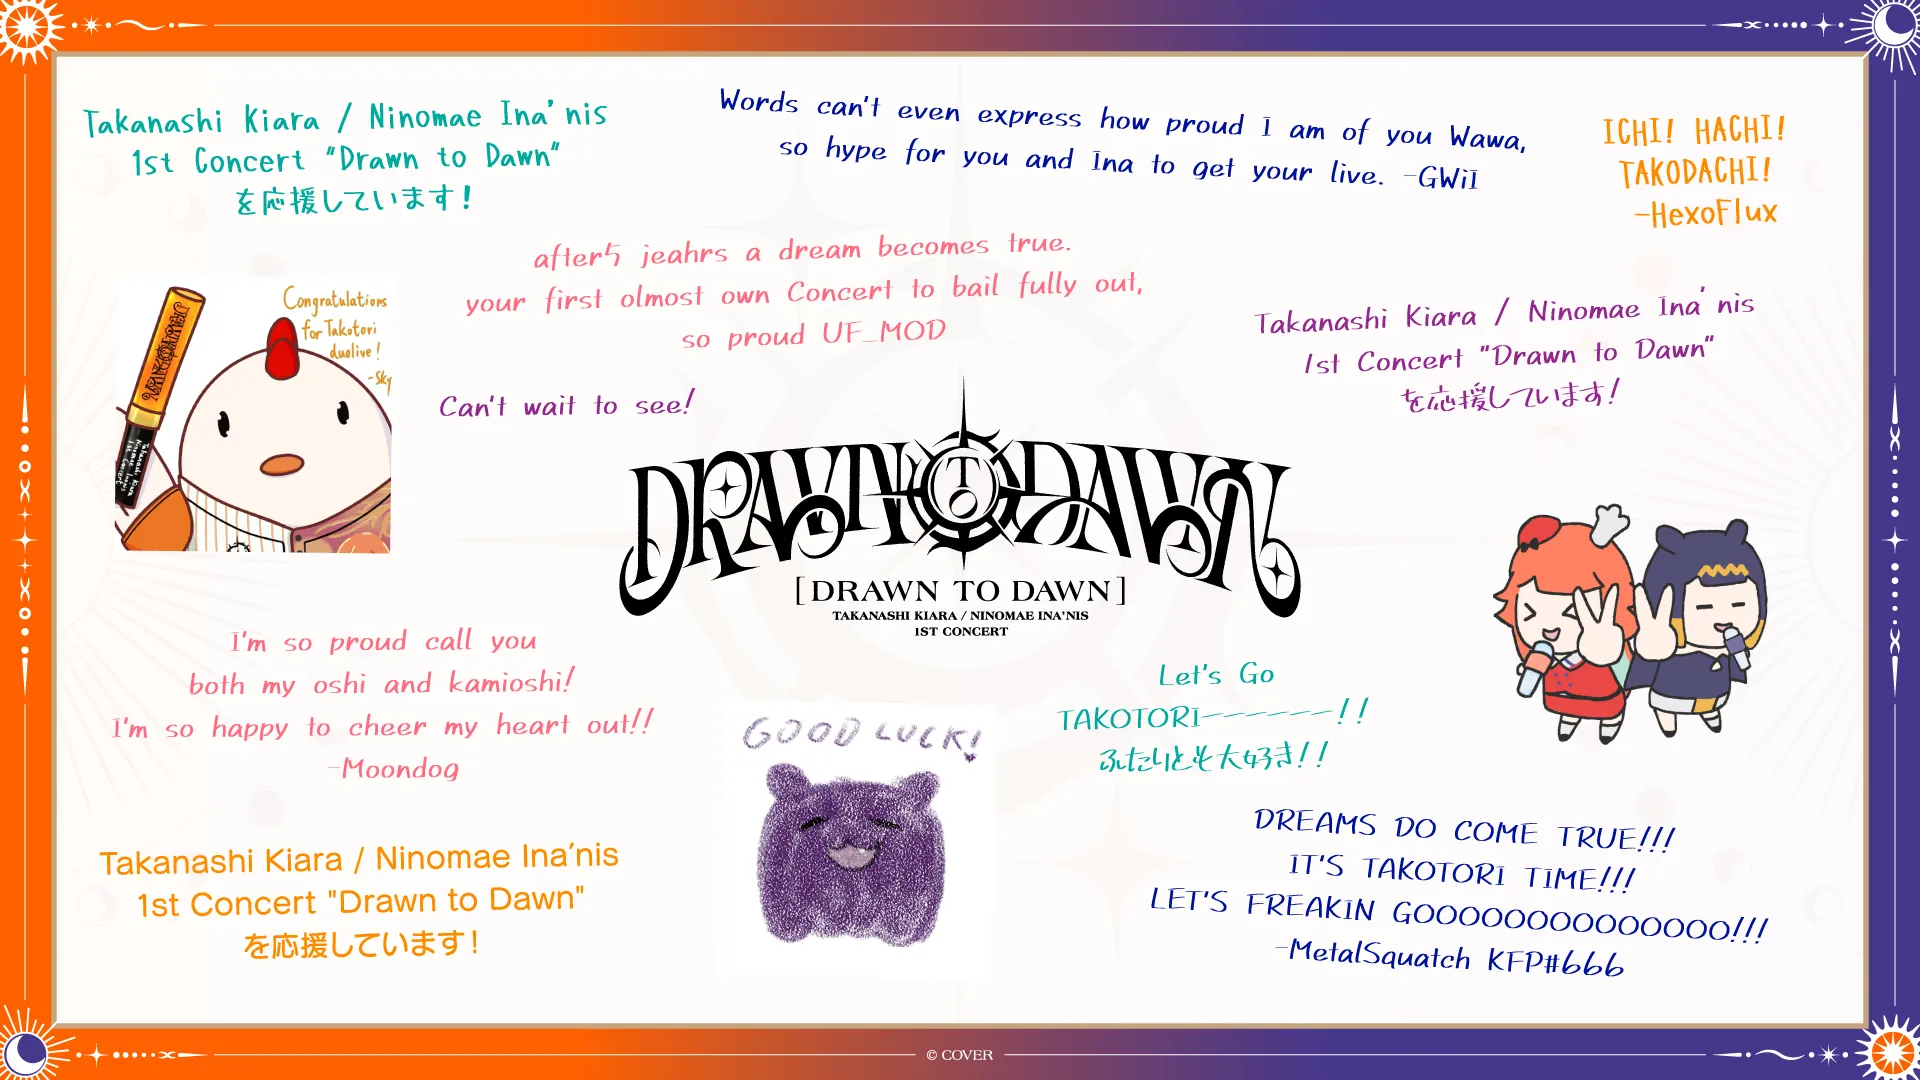 Takanashi Kiara / Ninomae Ina'nis
1st Concert "Drawn to Dawn"
を応援しています！
Words can't even express how proud I am of you Wawa,
so hype for you and Ina to get your live. -GWiI
ICHI! HACHI!
TAKODACHI!
-HexoFlux
after5 jeahrs a dream becomes true.
your first olmost own Concert to bail fully out,
so proud UF_MOD
Congratulations
for Takotori
duolive!
-Sky
Takanashi Kiara
Ninomae Ina'nis
1st Concert
Takanashi Kiara / Ninomae Ina'nis
1st Concert "Drawn to Dawn"
を応援しています！
Can't wait to see!
DRAWN TO DAWN
[DRAWN TO DAWN]
TAKANASHI KIARA / NINOMAE INA'NIS
1ST CONCERT
I'm so proud call you
both my oshi and kamioshi!
I'm so happy to cheer my heart out!!
-Moondog
GOOD LUCK!
Let's Go
TAKOTORIーーーーーー!!
ふたりとも大好き!!
Takanashi Kiara / Ninomae Ina'nis
1st Concert "Drawn to Dawn"
を応援しています！
DREAMS DO COME TRUE!!!
IT'S TAKOTORI TIME!!!
LET'S FREAKIN GOOOOOOOOOOOOOOO!!!
-MetalSquatch KFP#666
© COVER